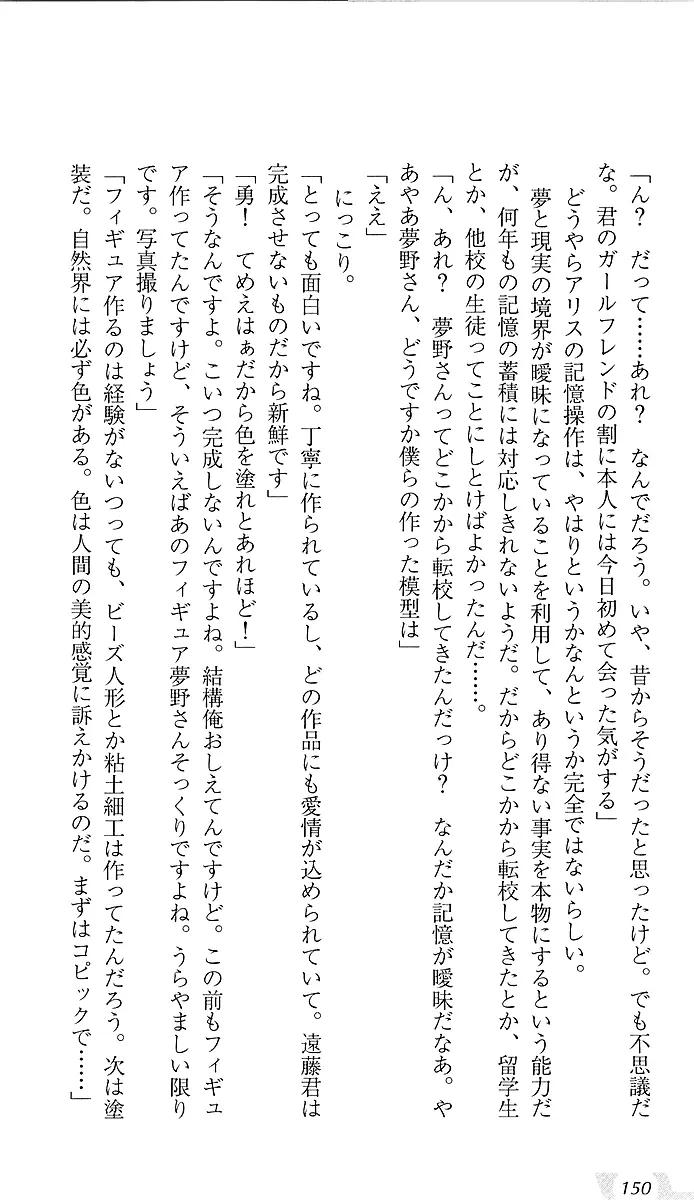 「ん？　だって……あれ？　なんでだろう。いや、昔からそうだったと思ったけど。でも不思議だ
な。君のガールフレンドの割に本人には今日初めて会った気がする」
　どうやらアリスの記憶操作は、やはりというかなんというか完全ではないらしい。
　夢と現実の境界が曖昧になっていることを利用して、あり得ない事実を本物にするという能力だ
が、何年もの記憶の蓄積には対応しきれないようだ。だからどこかから転校してきたとか、留学生
とか、他校の生徒ってことにしとけばよかったんだ……。
「ん、あれ？　夢野さんってどこかから転校してきたんだっけ？　なんだか記憶が曖昧だなあ。や
あやあ夢野さん、どうですか僕らの作った模型は」
「ええ」
　にっこり。
「とっても面白いですね。丁寧に作られているし、どの作品にも愛情が込められていて。遠藤君は
完成させないものだから新鮮です」
「勇！　てめえはぁだから色を塗れとあれほど！」
「そうなんですよ。こいつ完成しないんですよね。結構俺おしえてんですけど。この前もフィギュ
ア作ってたんですけど、そういえばあのフィギュア夢野さんそっくりですよね。うらやましい限り
です。写真撮りましょう」
「フィギュア作るのは経験がないつっても、ビーズ人形とか粘土細工は作ってたんだろう。次は塗
装だ。自然界には必ず色がある。色は人間の美的感覚に訴えかけるのだ。まずはコピックで……」
150